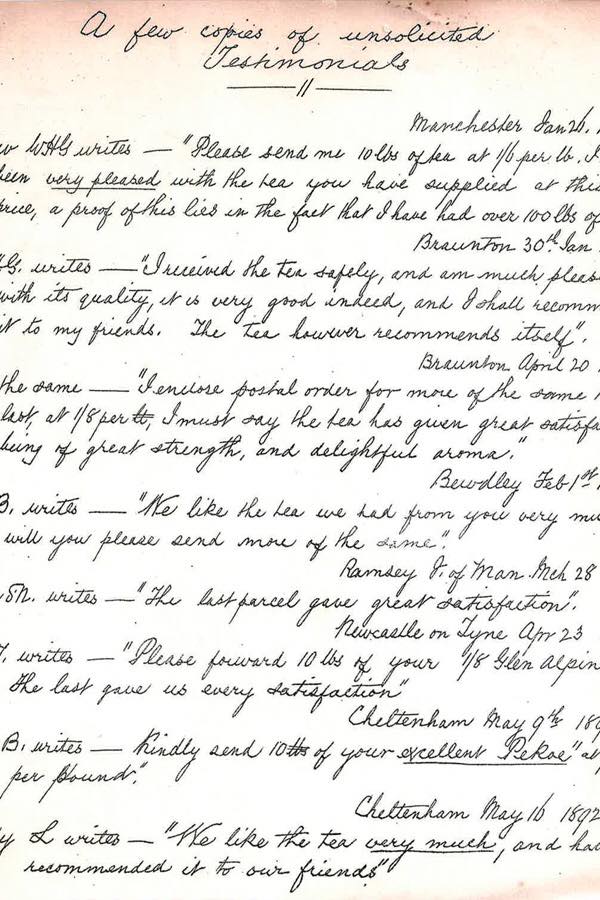 A few copies of unsolicited
Testimonials
Manchester Jan 26.
WHG writes — "Please send me 10 lbs of tea at 1/6 per lb. I
been very pleased with the tea you have supplied at this
price, a proof of this lies in the fact that I have had over 100 lbs of
Braunton 30th Jan
G. writes — "I received the tea safely, and am much please
with its quality, it is very good indeed, and I shall recomm
it to my friends. The tea however recommends itself".
Braunton April 20
the same — "I enclose postal order for more of the same
last, at 1/8 per lb, I must say the tea has given great satisfa
being of great strength, and delightful aroma."
Bewdley Feb 1st
B. writes — "We like the tea we had from you very mu
will you please send more of the same".
Ramsey I. of Man. Mch 28
writes — "The last parcel gave great satisfaction".
Newcastle on Tyne Apr 23
writes — "Please forward 10 lbs of your 1/8 Glen Alpin
The last gave us every satisfaction"
Cheltenham May 9th 189
B. writes — Kindly send 10 lbs of your excellent Pekoe" at
per pound".
Cheltenham May 16 1892
y L writes — "We like the tea very much, and ha
recommended it to our friends"